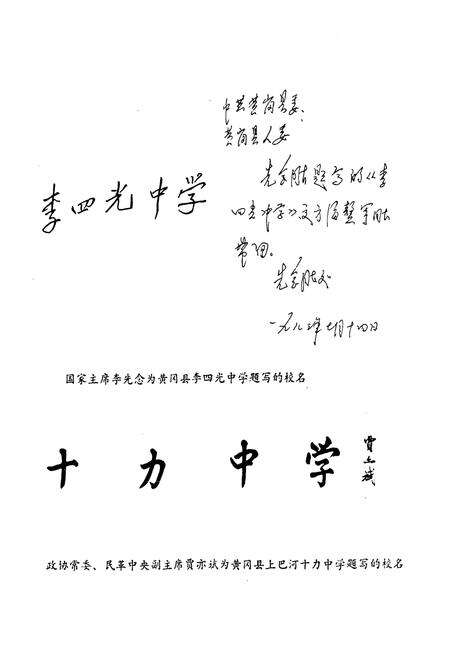 李四光中学
中共黄岗县委、
黄岗县人委
先念同志题写的《李
四光中学》交方
带回。
一九八三年七月十四日
国家主席李先念为黄冈县李四光中学题写的校名
十力中学
贾亦斌
政协常委、民革中央副主席贾亦斌为黄冈县上巴河十力中学题写的校名